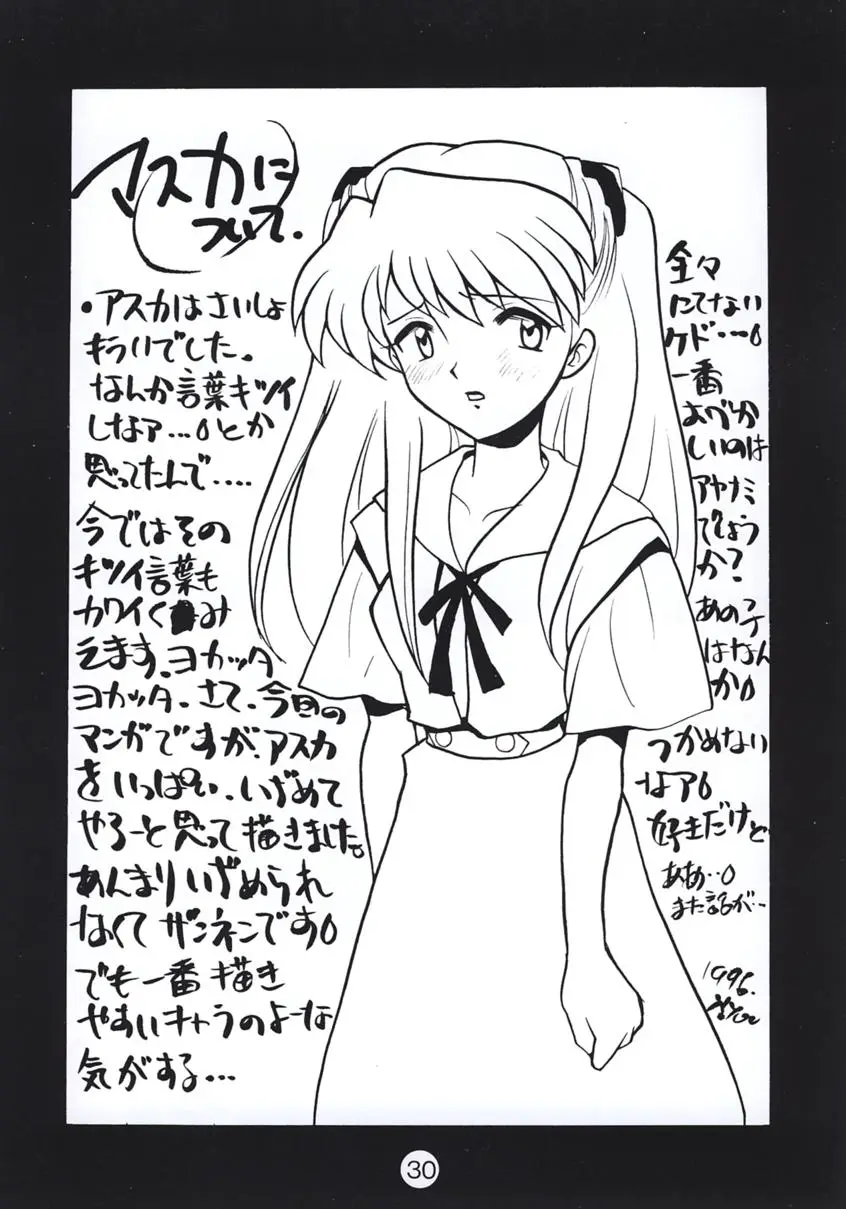 アスカに
ついて.
・アスカはさいしょ
キライでした。
なんか言葉キツイ
しなァ...とか
思ってたんで....
今ではその
キツイ言葉も
カワイくみ
えます.ヨカッタ
ヨカッタ.さて.今回の
マンガですが.アスカ
をいっぱい.いぢめて
やろーと思って描きました。
あんまりいぢめられ
なくてザンネンです
でも一番描き
やすいキャラのよーな
気がする...
全々
にてない
ケド...
一番
むづか
しいのは
アヤナミ
でしょう
か?
あの子
はなん
か
つかめない
なァ
好きだけど
ああ..
また話が..
1996.
30